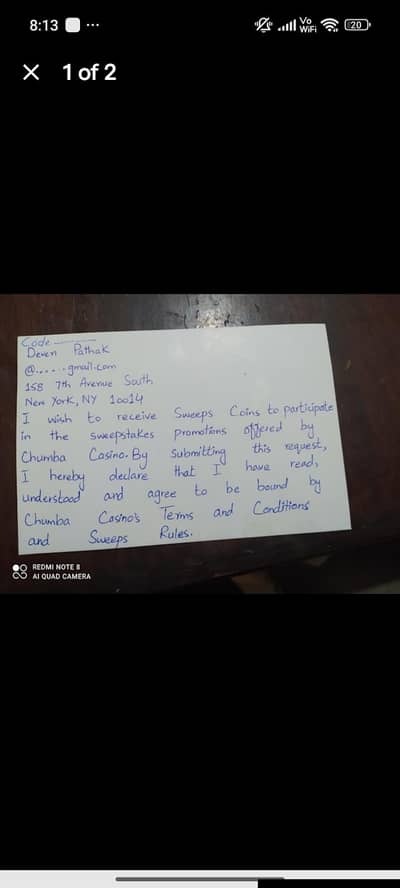 8:13 ...
Vo
WiFi
20
X 1 of 2
Code
Deven Pathak
@.....gmail.com
158 7th Avenue South
New York, NY 10014
I wish to receive Sweeps Coins to participate
in the sweepstakes promotions offered by
Chumba Casino. By Submitting this request,
I hereby declare that I have read,
understood and agree to be bound by
Chumba Casino's Terms and Conditions
and Sweeps Rules.
REDMI NOTE 8
AI QUAD CAMERA